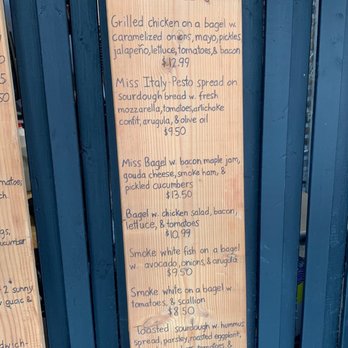 Grilled chicken on a bagel w.
caramelized onions, mayo, pickles
jalapeño, lettuce, tomatoes, & bacon
$12.99
Miss Italy-Pesto spread on
sourdough bread w. fresh
mozzarella, tomatoes, artichoke
confit, arugula, & olive oil
$9.50
Miss Bagel w. bacon maple jam,
gouda cheese, smoke ham, &
pickled cucumbers
$13.50
Bagel w. chicken salad, bacon,
lettuce, & tomatoes
$10.99
Smoke white fish on a bagel
w. avocado, onions, & arugula
$9.50
Smoke white on a bagel w.
tomatoes, & scallion
$8.50
Toasted sourdough w. hummus
spread, parsley, roasted eggplant,
50
matoes,
cucumber
2 sunny
w guac &